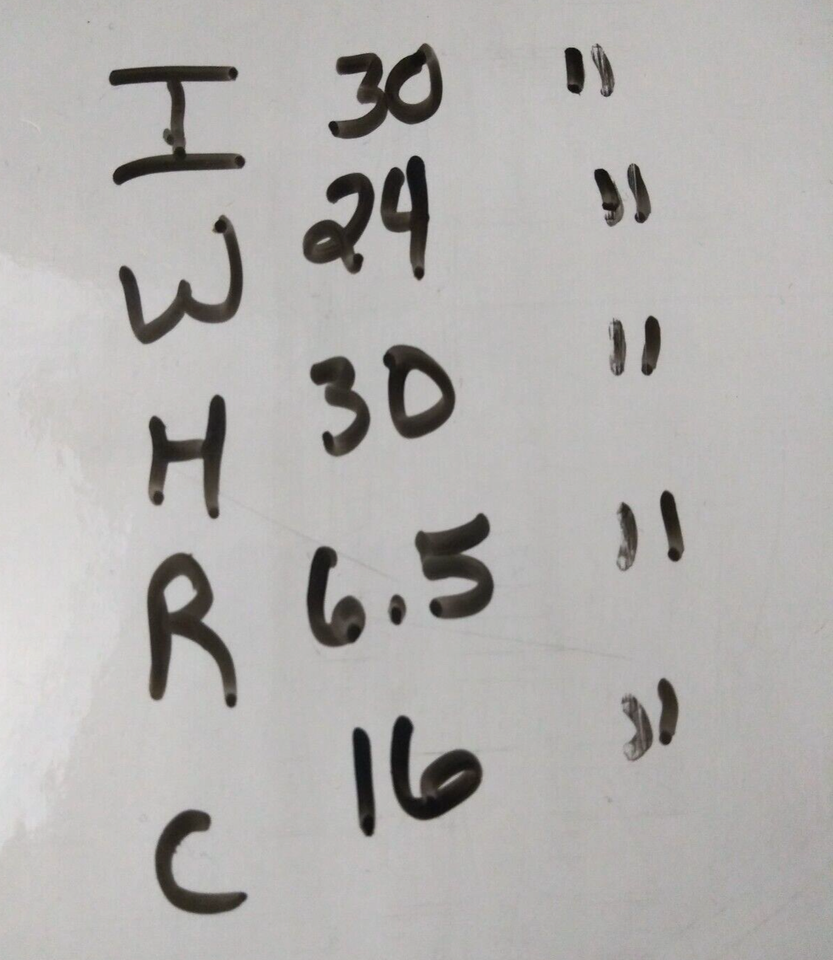 I 30 "
W 24 "
H 30 "
R 6.5 "
C 16 "